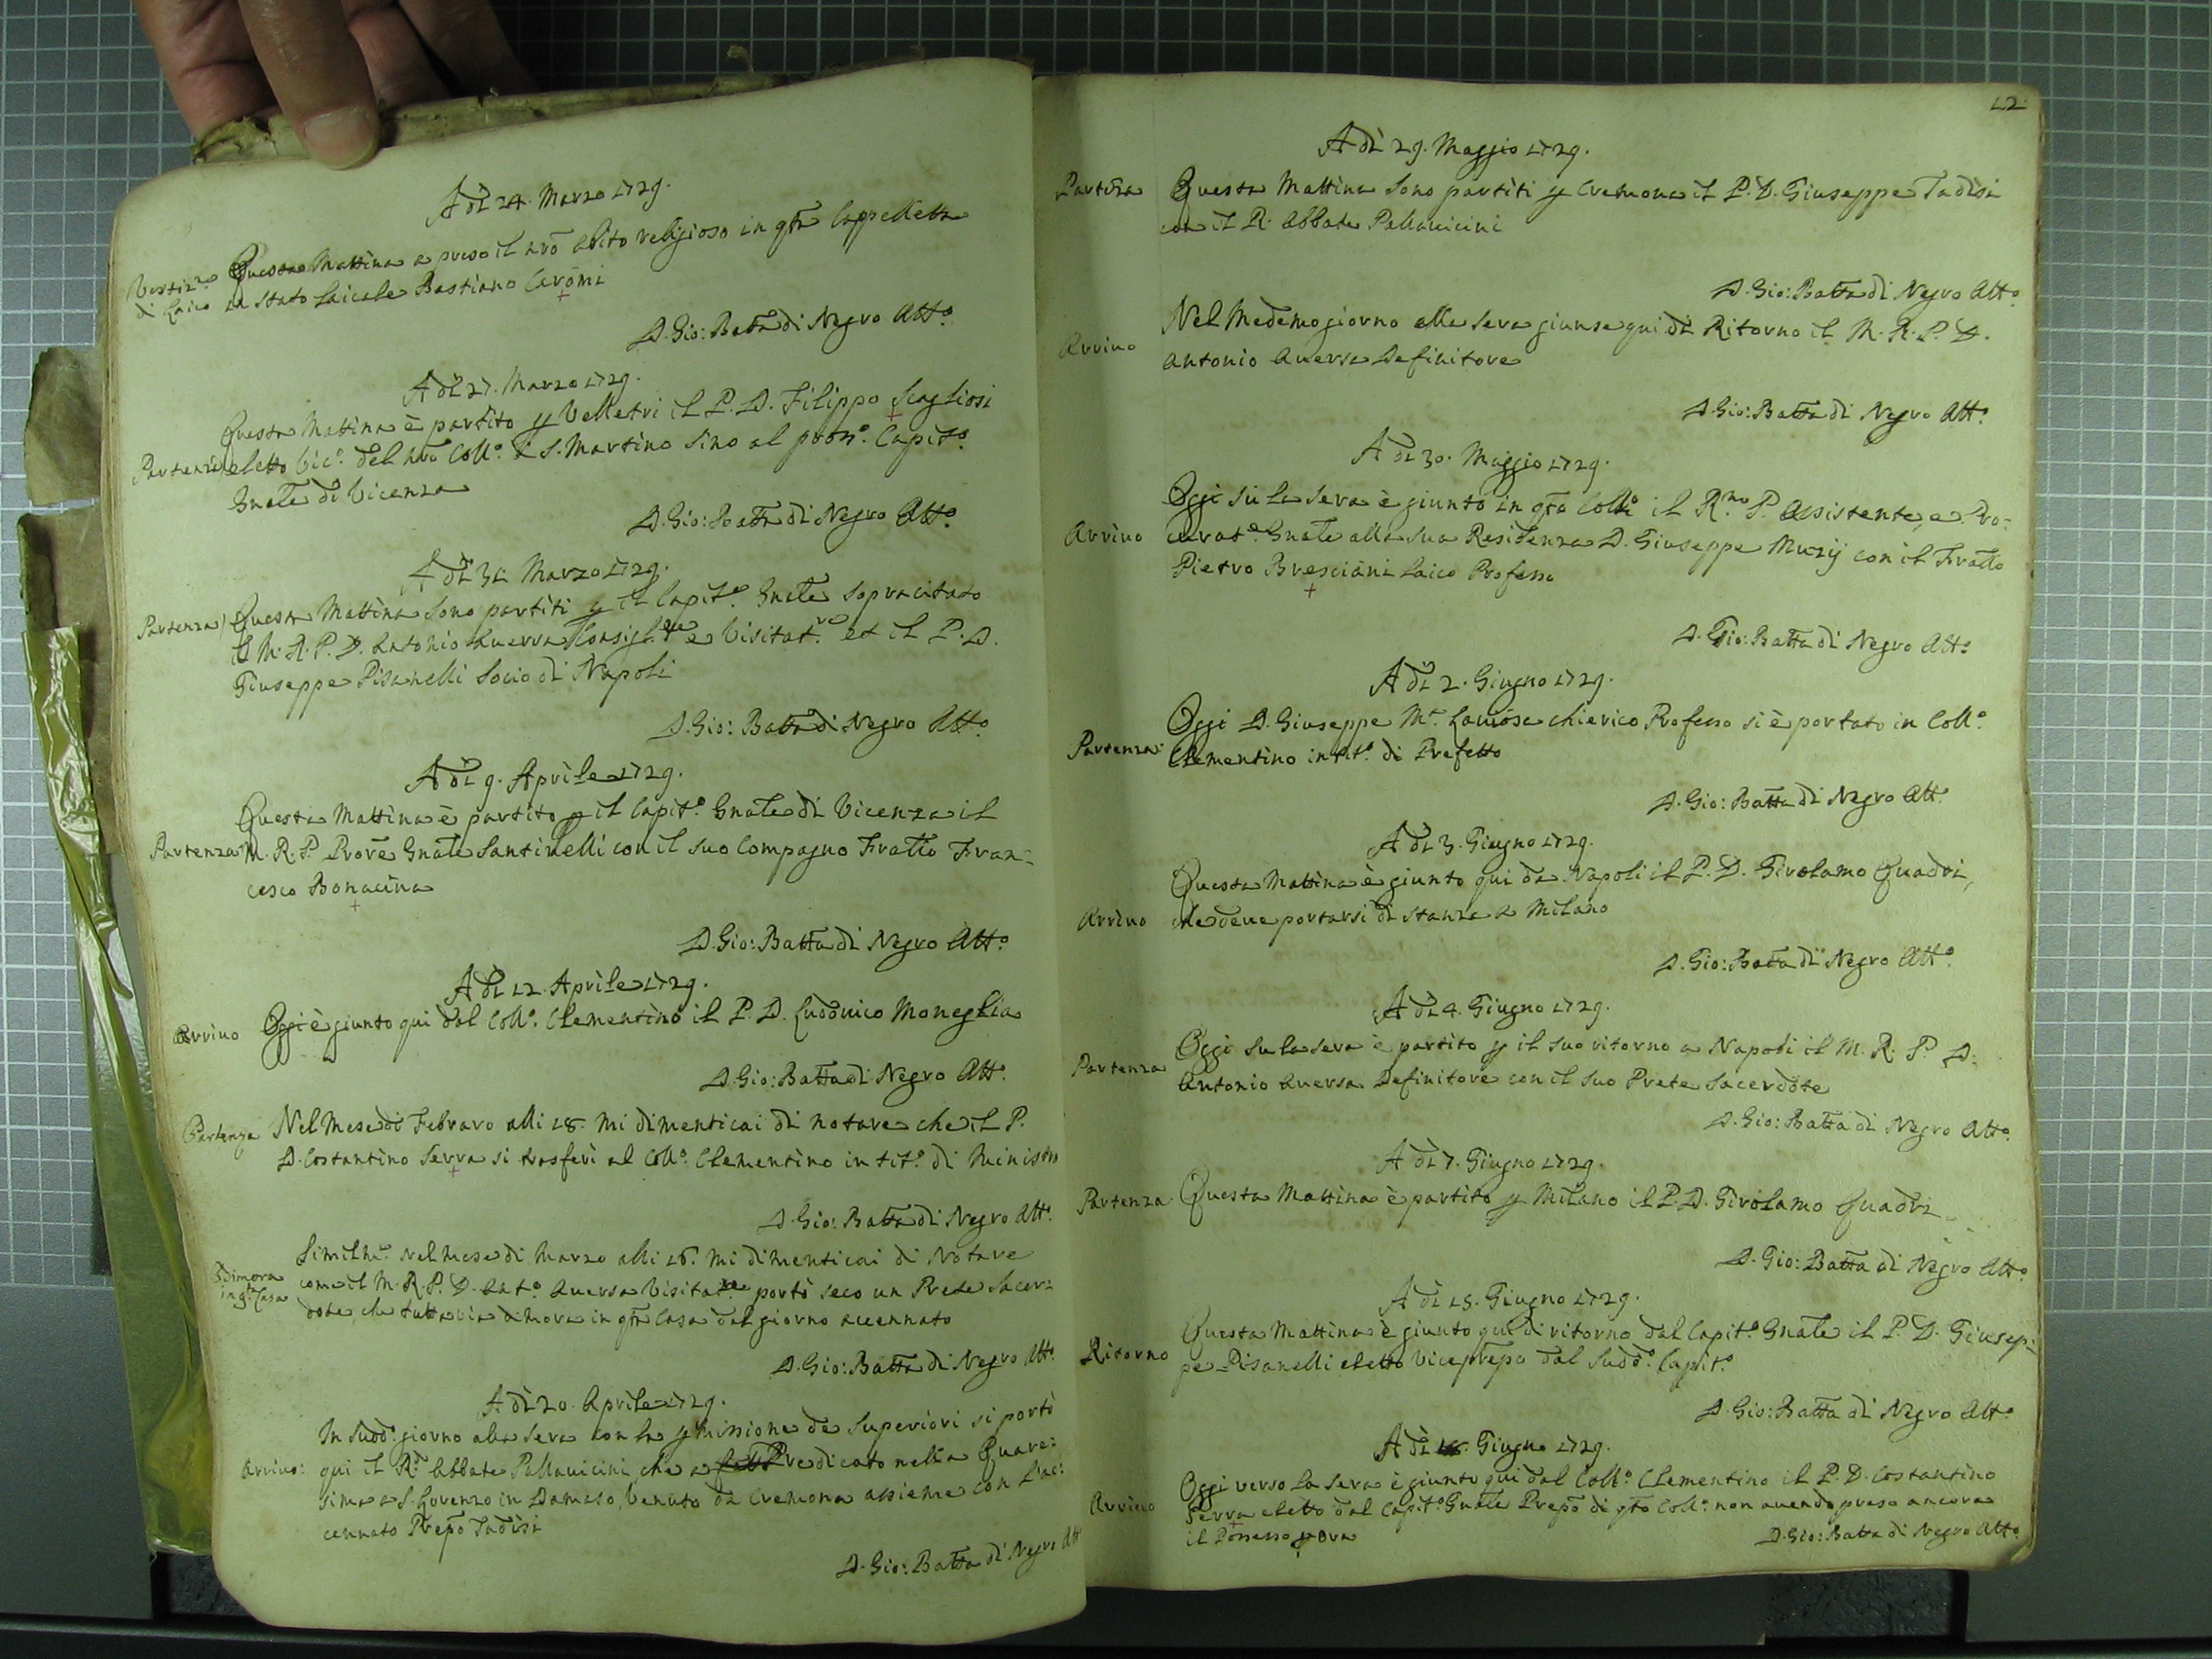 A dì 24. Marzo 1729.
Vestiz.ne di Laico
Questa Mattina a preso il nrō abito religioso in qtā Cappelletta
in stato Laicale Bastiano Caroni
D. Gio: Batta di Negro Att.o
A dì 27. Marzo 1729.
Partenza
Questa Mattina è partito p Velletri il P. D. Filippo Scagliosi
eletto Vic.o del nrō Coll.o di S. Martino sino al pros.o Capit.o
Gnāle di Vicenza
D. Gio: Batta di Negro Att.o
A dì 31 Marzo 1729.
Partenza
Questa Mattina sono partiti p il Capit.o Gnāle sopracitato
il M. R. P. D. Antonio Auersa Consigl.re e Visitat.re et il P. D.
Giuseppe Pisanelli Socio di Napoli
D. Gio: Batta di Negro Att.o
A dì 9. Aprile 1729.
Partenza
Questa Mattina è partito p il Capit.o Gnāle di Vicenza il
M. R. P. Prorē Gnāle Santinelli con il suo Compagno Fratto Fran-
cesco Bonacina
D. Gio: Batta di Negro Att.o
A dì 12. Aprile 1729.
Arriuo
Oggi è giunto qui dal Coll.o Clementino il P. D. Ludouico Moneglia
D. Gio: Batta di Negro Att.o
Partenza
Nel Mese di Febraro alli 18. mi dimenticai di notare che il P.
D. Costantino Serra si trasferì al Coll.o Clementino in tit.o di Ministro
D. Gio: Batta di Negro Att.o
Dimora in qtā Casa
Similm.e nel mese di Marzo alli 16. mi dimenticai di Notare
come il M. R. P. D. Ant.o Auersa Visitat.re portò seco un Prete Sacer-
dote, che tuttavia dimora in qtā Casa dal giorno accennato
D. Gio: Batta di Negro Att.o
A dì 20. Aprile 1729.
Arriuo:
In sudd.o giorno alla sera con la pmissione de Superiori si portò
qui il R. Abbate Pallauicini, che a Predicato nella Quare-
sima a S. Lorenzo in Damaso, Venuto da Cremona assieme con l'ac-
cennato Prepo Tadisi
D. Gio: Batta di Negro Att
12
A dì 29. Maggio 1729.
Partēza
Questa Mattina sono partiti p Cremona il P. D. Giuseppe Tadisi
con il R. Abbate Pallauicini
D. Gio: Batta di Negro Att.o
Arriuo
Nel Medemo giorno alla sera giunse qui di Ritorno il M. R. P. D.
Antonio Auersa Definitore
D. Gio: Batta di Negro Att.o
A dì 30. Maggio 1729.
Arriuo
Oggi sù la sera è giunto in qto Coll.o il R.mo P. Assistente, e Pro-
curat.e Gnāle alla sua Residenza D. Giuseppe Muzij con il Fratto
Pietro Bresciani Laico Professo
D. Gio: Batta di Negro Att.o
A dì 2. Giugno 1729.
Partenza
Oggi D. Giuseppe M.a Lauiosa chierico Professo si è portato in Coll.o
Clementino in tit.o di Prefetto
D. Gio: Batta di Negro Att.
A dì 3. Giugno 1729.
Arriuo
Questa Mattina è giunto qui da Napoli il P. D. Girolamo Quadri,
che deue portarsi di stanza a Milano
D. Gio: Batta di Negro Att.o
A dì 4. Giugno 1729.
Partenza
Oggi su la sera è partito p il suo ritorno a Napoli il M. R. P. D.
Antonio Auersa Definitore con il suo Prete Sacerdote
D. Gio: Batta di Negro Att.o
A dì 7. Giugno 1729.
Partenza
Questa Mattina è partito p Milano il P. D. Girolamo Quadri
D. Gio: Batta di Negro Att.o
A dì 15. Giugno 1729.
Ritorno
Questa Mattina è giunto qui di ritorno dal Capit.o Gnāle il P. D. Giusep-
pe Pisanelli eletto Viceprepo dal sudd.o Capit.o
D. Gio: Batta di Negro Att.o
A dì Giugno 1729.
Arriuo
Oggi verso la sera è giunto qui dal Coll.o Clementino il P. D. Costantino
Serra eletto dal Capit.o Gnāle Prepo di qto Coll.o non auendo preso ancora
il Possesso p ora
D. Gio: Batta di Negro Att.o